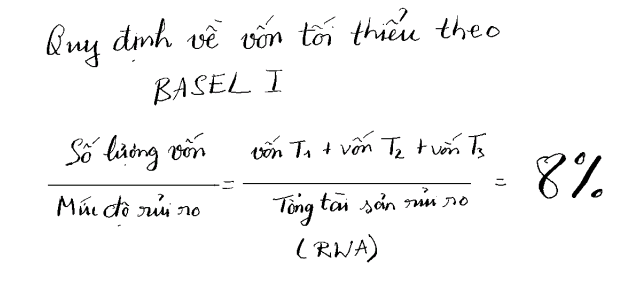 Quy định về vốn tối thiểu theo
BASEL I
Số lượng vốn / Mức độ rủi ro = vốn T1 + vốn T2 + vốn T3 / Tổng tài sản rủi ro = 8%
(RWA)